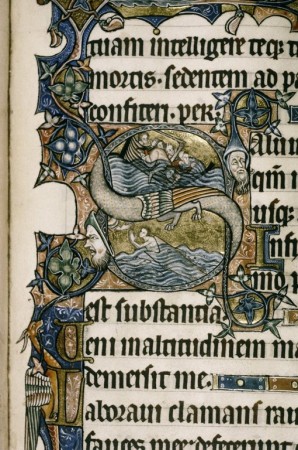 tuam intelligere teq;
mortis. sedentem ad
confiteri. per.
Aluu
qm i
usq;
Infi
mo.
est substantia.
eni in altitudinem ma
demersit me.
aboraui clamans rau
fauces mee defecerunt